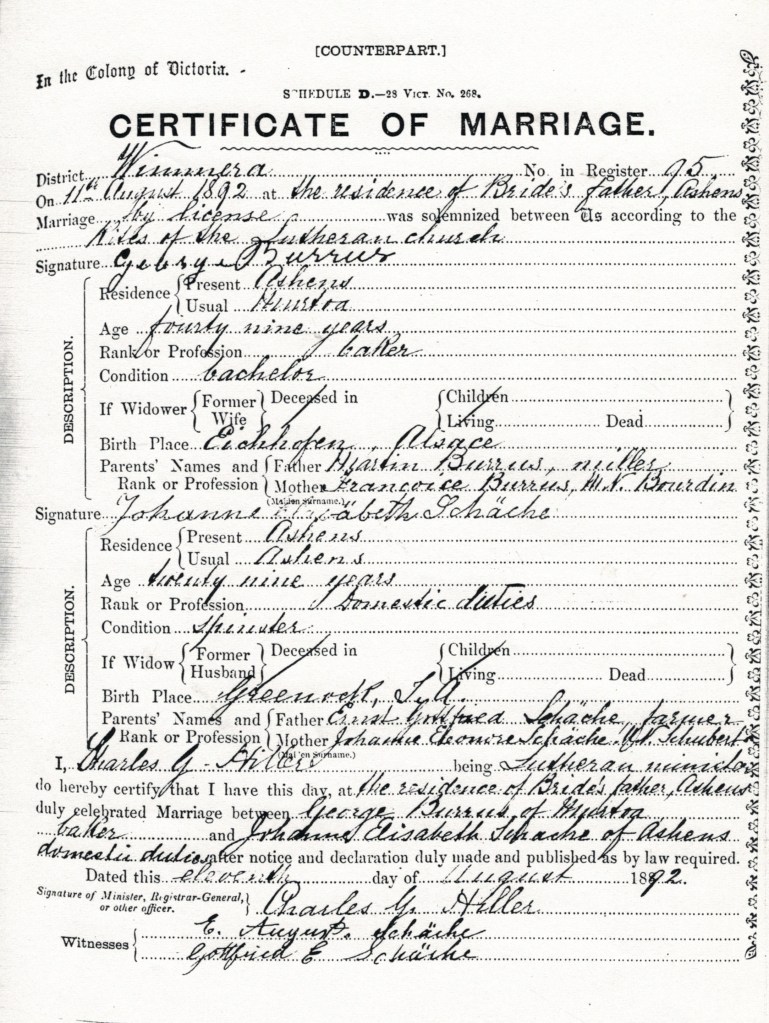 [COUNTERPART.]
In the Colony of Victoria.
SCHEDULE D.—28 VICT. No. 268.
CERTIFICATE OF MARRIAGE.
District Wimmera No. in Register 95
On 11th August 1892 at the residence of Bride's father, Ashens
Marriage by license was solemnized between Us according to the
Rites of the Lutheran church
Signature George Burrus
DESCRIPTION.
Residence Present Ashens
Usual Murtoa
Age fourty nine years
Rank or Profession baker
Condition bachelor
If Widower Former Wife Deceased in Children Living Dead
Birth Place Eichhofen, Alsace
Parents' Names and Rank or Profession Father Martin Burrus, miller
Mother (Maiden Surname.) Francoice Burrus, M.N. Bourdin
Signature Johanne Elisabeth Schäche
DESCRIPTION.
Residence Present Ashens
Usual Ashens
Age twenty nine years
Rank or Profession Domestic duties
Condition Spinster
If Widow Former Husband Deceased in Children Living Dead
Birth Place Greenock, S.A.
Parents' Names and Rank or Profession Father Ernst Gottfried Schäche, farmer
Mother (Maiden Surname.) Johanne Eleonore Schäche. M.N. Schubert
I, Charles G. Hiller being Lutheran minister
do hereby certify, that I have this day, at the residence of Bride's father, Ashens
duly celebrated Marriage between George Burrus of Murtoa
baker and Johanne Elisabeth Schäche of Ashens
domestic duties after notice and declaration duly made and published as by law required.
Dated this eleventh day of August 1892.
Signature of Minister, Registrar-General, or other officer. Charles G. Hiller
Witnesses E. August Schäche
Gottfried E Schäche